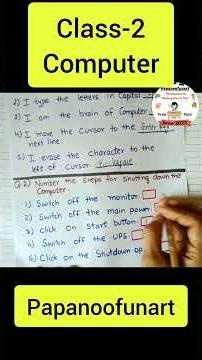 Class-2
Computer
2) I type the letters in Capital
3) I am the brain of Computer
4) I move the cursor to the Enter key
next line.
5) I erase the character to the
left of cursor Backspace
Q.2) Number the steps for shutting down the
Computer.
1) Switch off the monitor.
2) Switch off the main power.
3) Click on Start button
4) Switch off the UPS.
5) Click on the Shutdown op
Papanoofunart
Papanoofunart